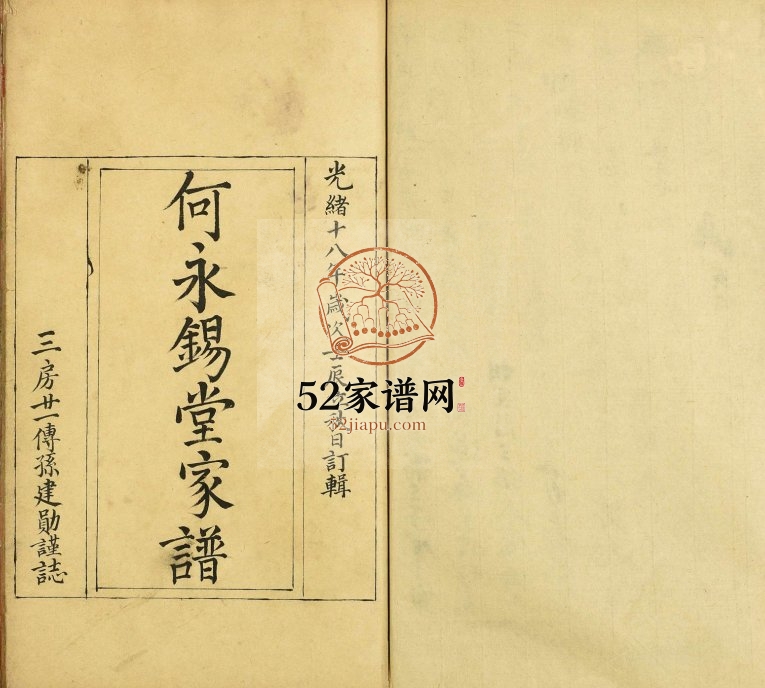 光緒十八年歲次壬辰秋日訂輯
何永錫堂家譜
三房廿一傳孫建勛謹誌
52家谱网
52jiapu.com